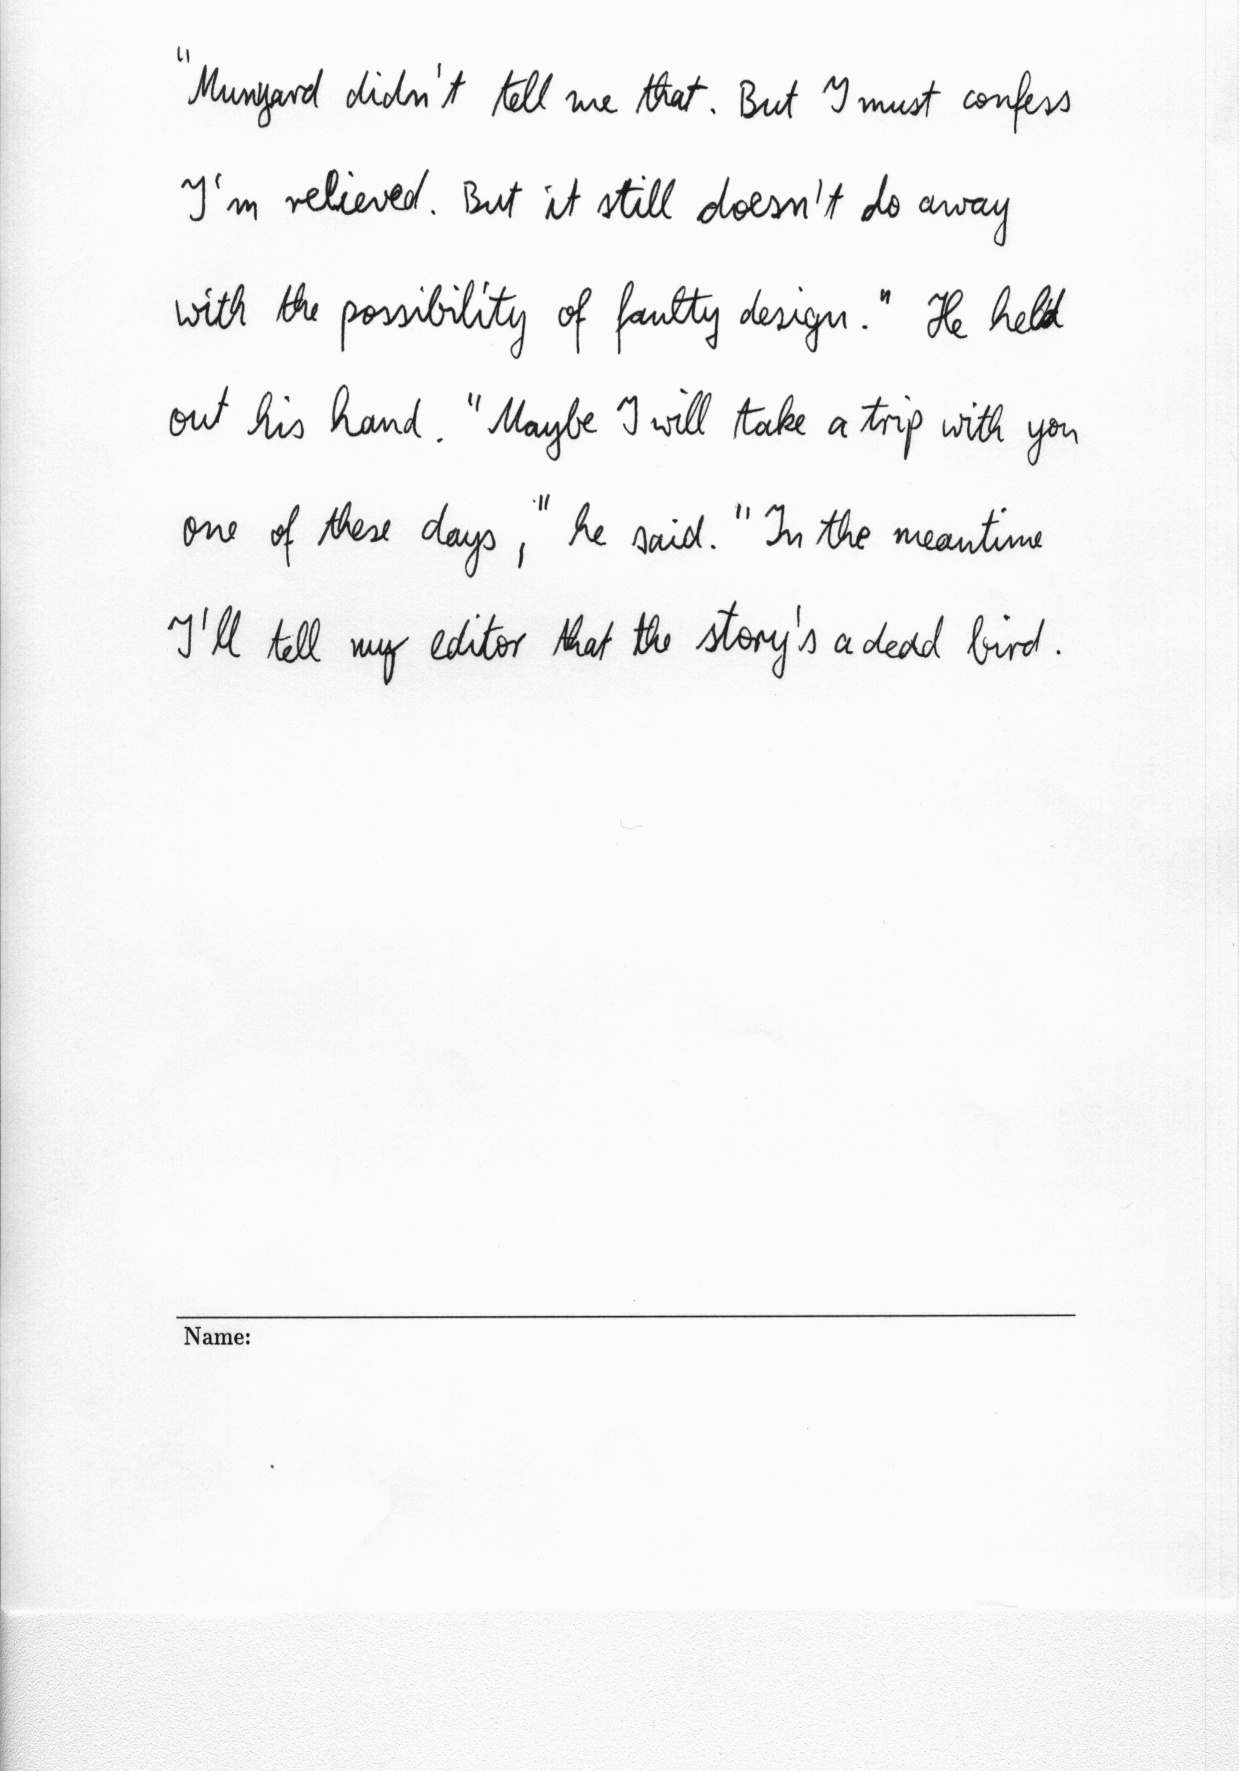 "Munyard didn't tell me that. But I must confess
I'm relieved. But it still doesn't do away
with the possibility of faulty design." He held
out his hand. "Maybe I will take a trip with you
one of these days," he said. "In the meantime
I'll tell my editor that the story's a dead bird.
Name: